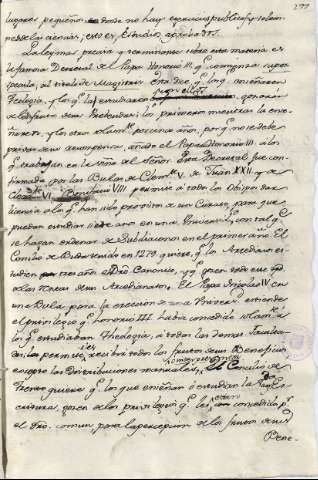 lugares pequeños donde no hay exercicios publicos, y solam.
se las demás, esto es Estudios aprobados.
La ley mas precisa y terminante sobre esta materia es
la famosa Decretal de el Papa Honorio III. q comienza super
specula, al titulo de Magistris. Esta dice q los q enseñaren
Teologia, y los q la estudiaren gozarán
de los frutos de sus Prebendas: los primeros mientras la ense-
ñaren, y los otros por cinco años, por q no se debe
privar de su recompensa, añade el Papa Honorio III. a los
q trabajan en la viña del Señor. Esta Decretal fue con-
firmada por las Bulas de Clem. V. de Juan XXII. y de
Clem. VI. Bonifacio VIII permite à todos los Obispos dar
licencia a los q han sido provistos de un Curato, para que
puedan estudiar siete años en una Univers. con tal q
se hagan ordenar de Subdiaconos en el primer año. El
Concilio de Buda tenido en 1279 quiere, q los Arcedianos es-
tudien tres años el Dro Canonico, y q gocen
de las Rentas de sus Arcedianatos. El Papa Nicolas IV en
una Bula para la ereccion de una Univers. estiende
el privilegio q Honorio III. havia concedido
los q estudiaban Theologia, à todas las demas Faculta-
des, les permite recibir todos los frutos de sus Beneficios
excepto las Distribuciones manuales. El Concilio de
Trento quiere q los que enseñan ò estudian la Sag. Es-
critura, gocen de los privilegios q les estan concedidos p.r
el Dro. comun, para la percepcion de los frutos de sus
Bene-